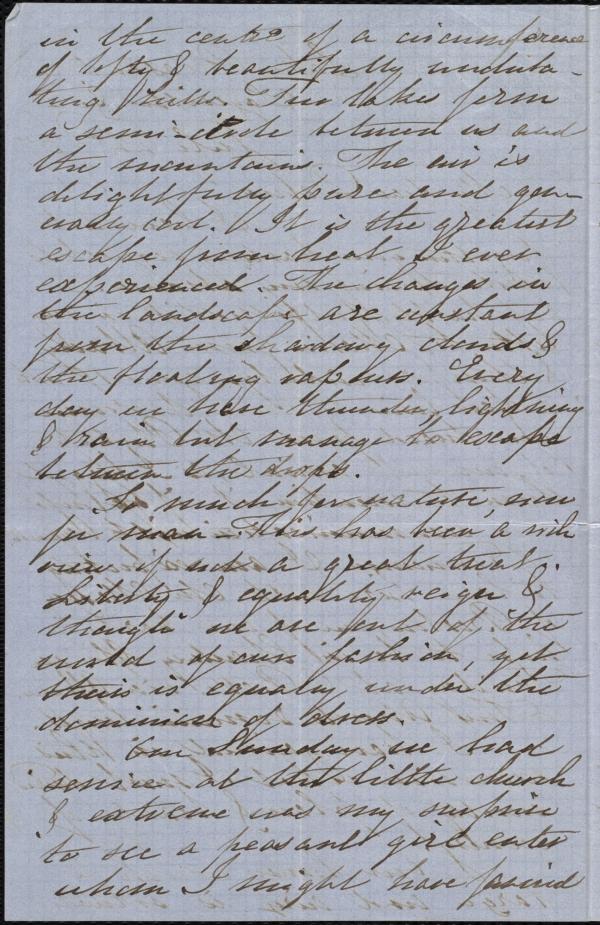 in the centre of a circumference
of lofty & beautifully undula-
ting hills. Two lakes form
a semi-circle between us and
the mountains. The air is
delightfully pure and gen-
erally cool. It is the greatest
escape from heat I ever
experienced. The changes in
the landscape are constant
from the shadowy clouds &
the floating vapours. Every
day we have thunder, lightning
& rain but manage to escape
between the drops.
So much for nature, now
for man - This has been a rich
view if not a great treat.
Liberty & equality reign &
though we are out of the
world of our fashion, yet
theirs is equally under the
dominion of dress.
On Sunday we had
service at the little church
& extreme was my surprise
to see a peasant girl enter
whom I might have